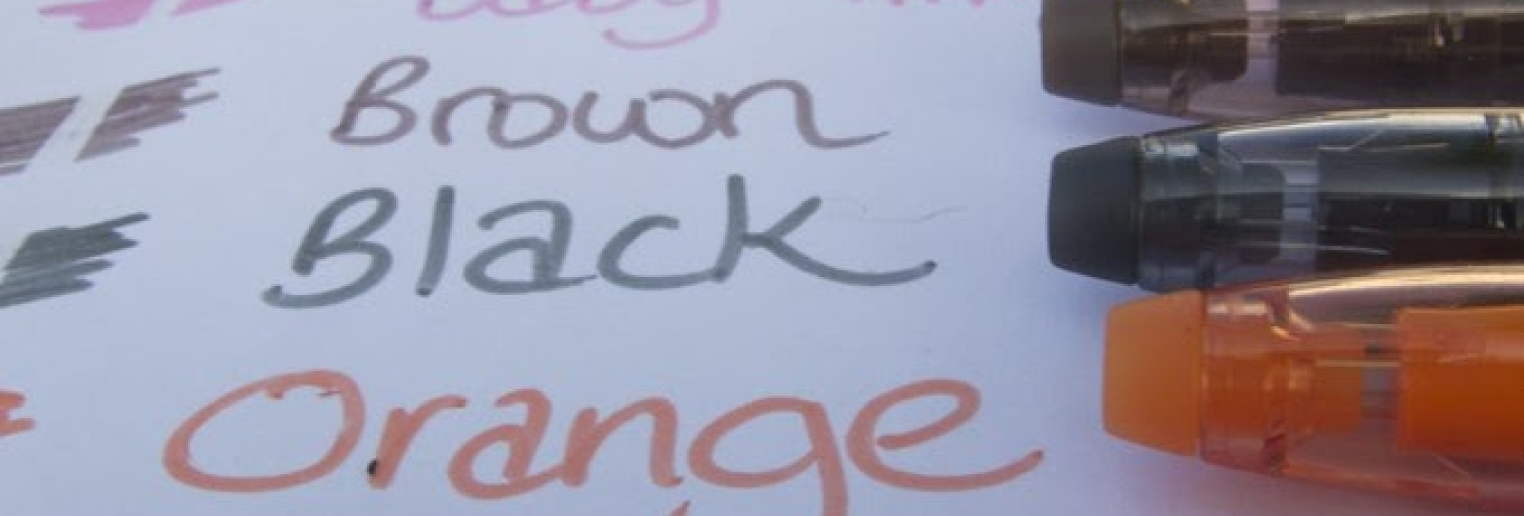 baby
Brown
Black
Orange